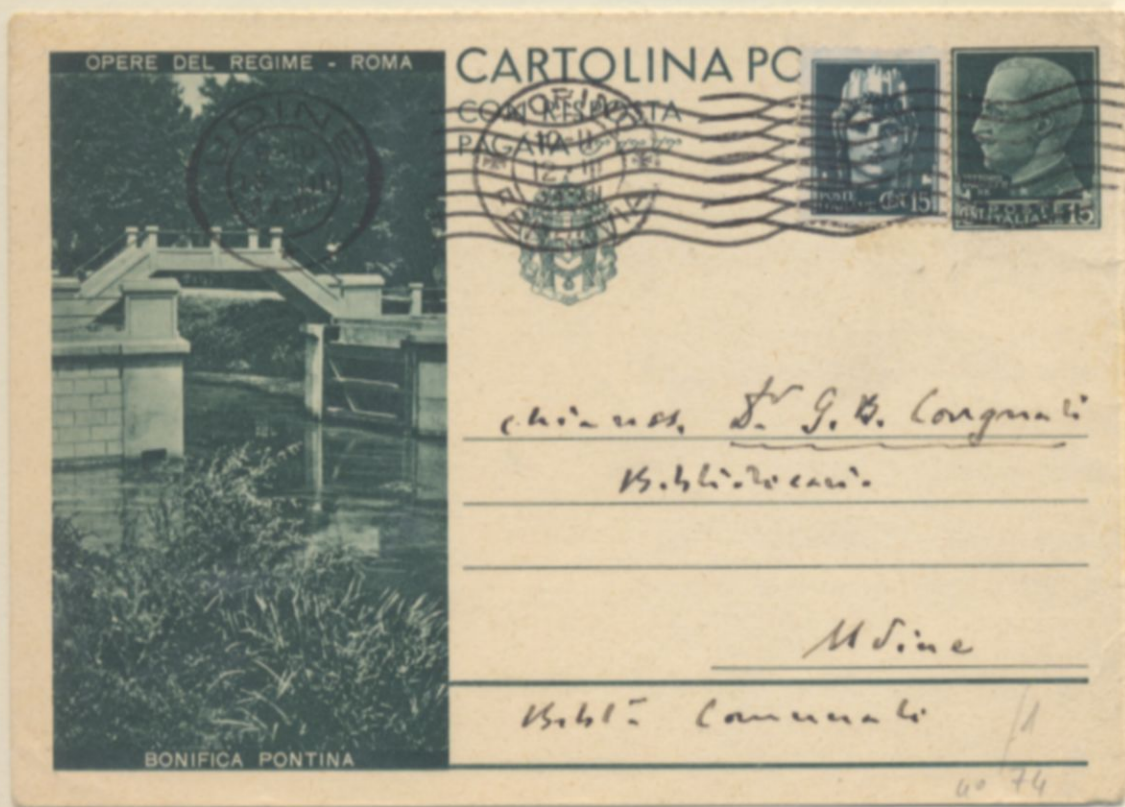 OPERE DEL REGIME - ROMA
CARTOLINA PO
CON RISPOSTA
PAGATA
UDINE
15
15
chiariss. Dr G.B. Corgnali
Bibliotecario
Udine
Bibl.a Comunale
BONIFICA PONTINA
1
40 74